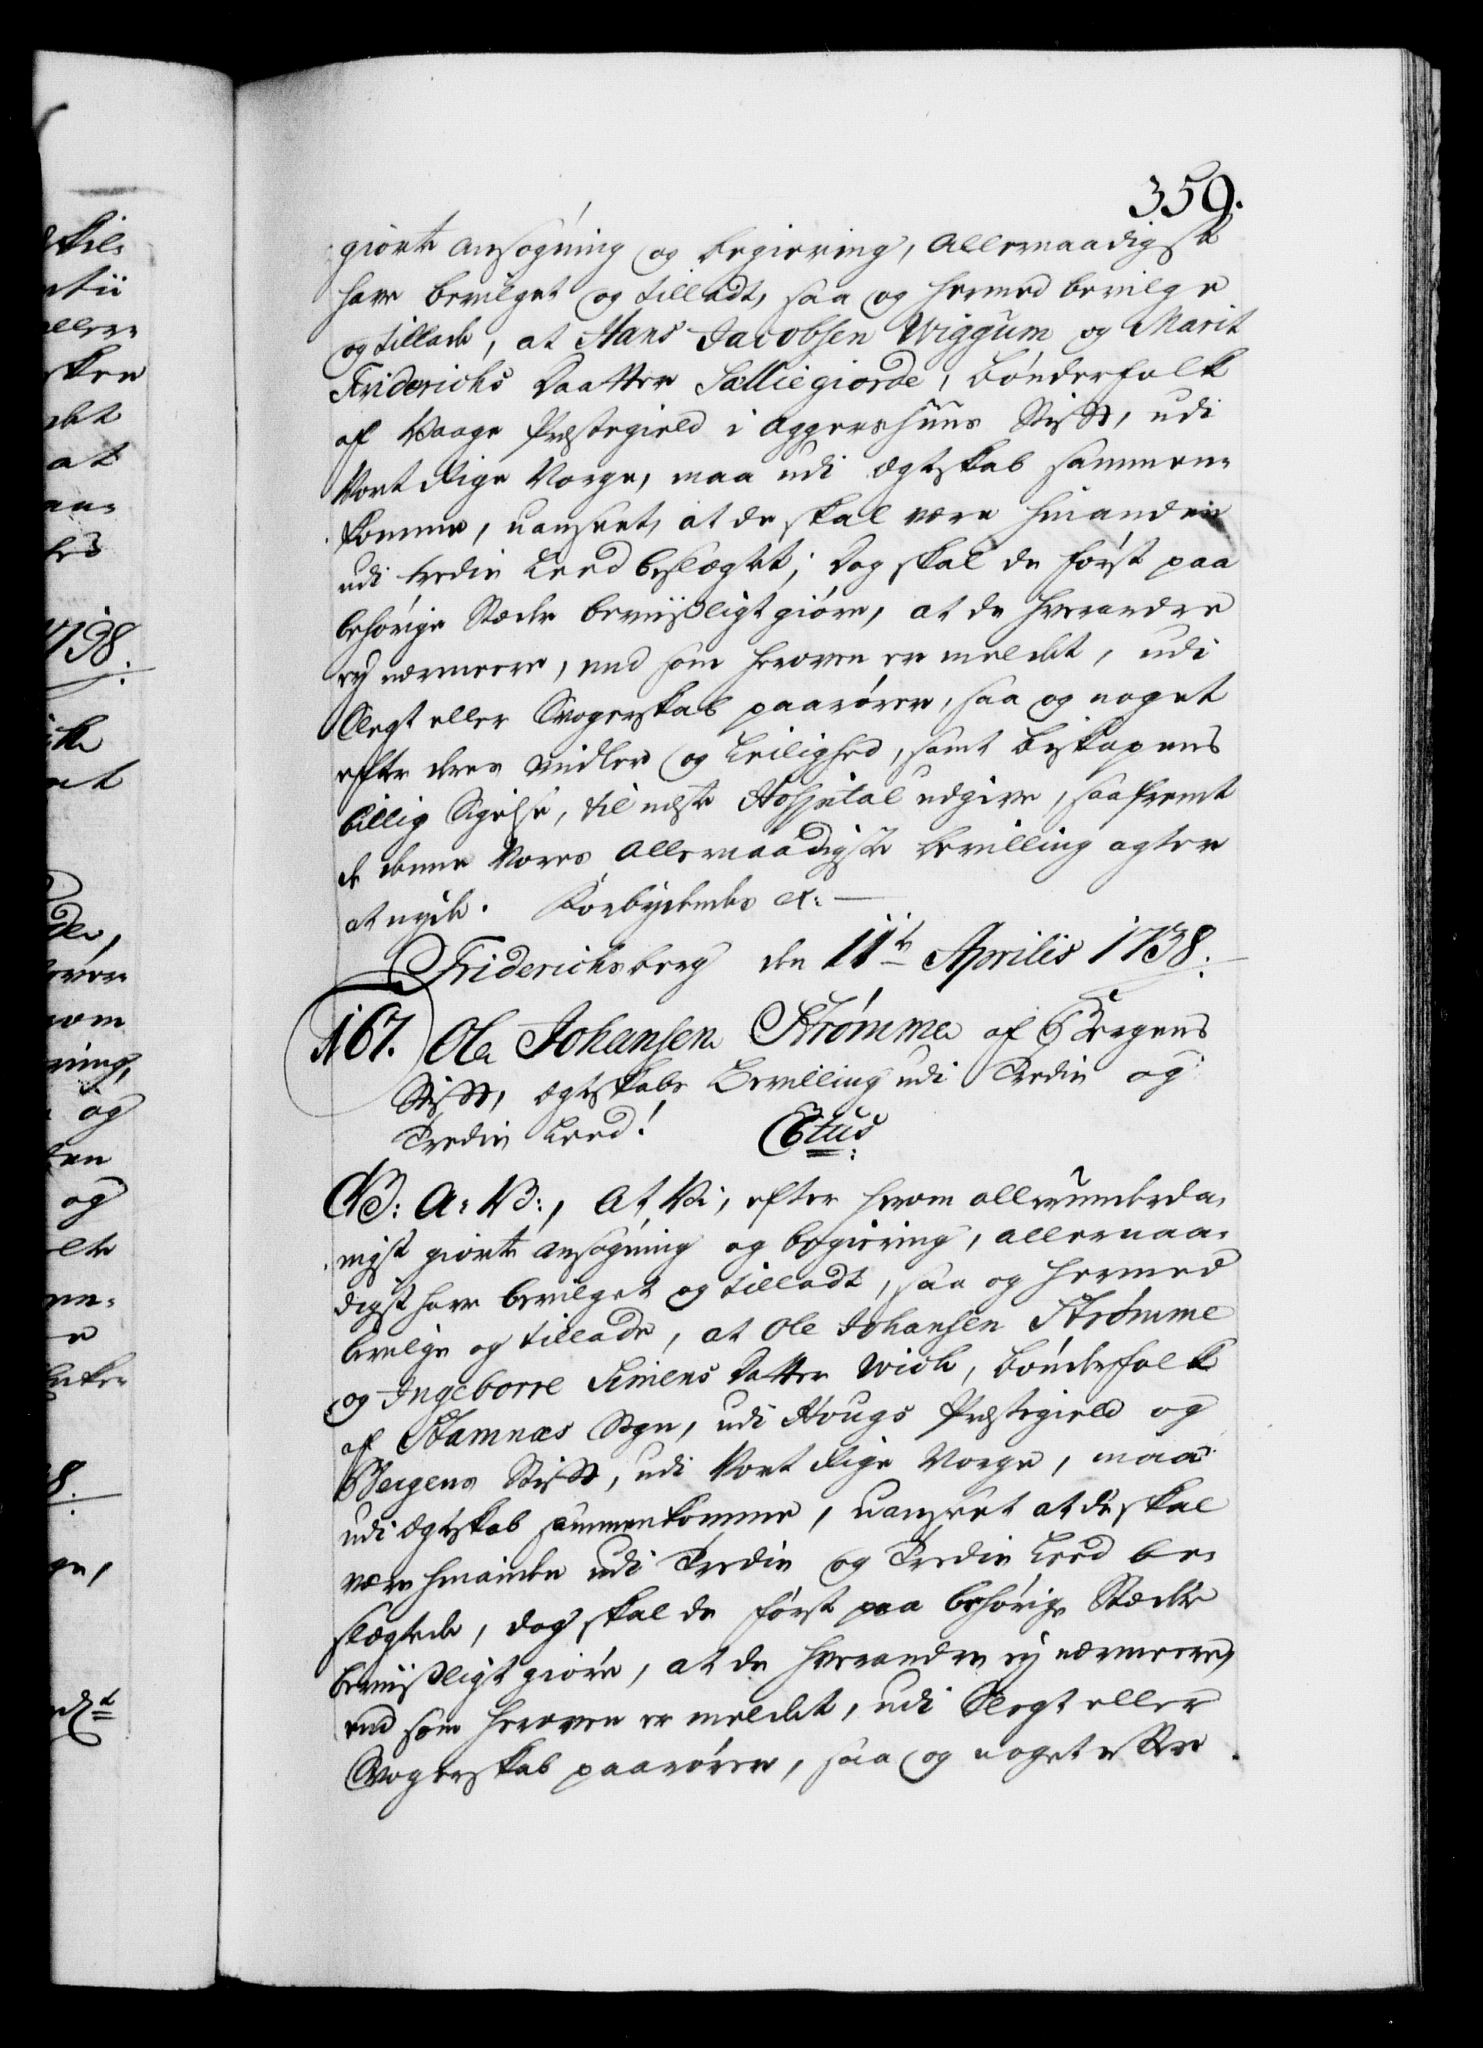 359.
giorte ansøgning og begiering, allernaadigst
have bevilget og tilladt, saa og hermed bevilge
og tillade, at Hans Jacobsen Wiggum og Marit
Friderichs Daatter Sælliegiorde, bønderfolk
af Vaage Præstegield i Aggershuus Stift, udi
Vort Rige Norge, maa udi Ægteskab sammen-
komme, uanseet, at de skal være hinanden
udi tredie Leed beslægtet; Dog skal de først paa
behørige Stæder beviisligt giøre, at de hverandre
ey nærmere, end som heroven er meldet, udi
Slegt eller Svogerskab paarører, saa og noget
efter deres Midler og Leilighed, samt Biskopens
billig Sigelse, til næste Hospital udgive, saafremt
de denne Vores allernaadigste bevilling agter
at nyde. Forbydendes etc:
Friderichsberg den 11te Aprilis 1738.
167. Ole Johansen Strømme af Bergens
Stift, Ægteskabs Bevilling udi Tredie og
Tredie Leed!
C6tus
V: G: A: V:, At Vi, efter herom allerunderda-
nigst giorte ansøgning og begiering, allernaa-
digst have bevilget og tilladt, saa og hermed
bevilge og tillade, at Ole Johansen Strømme
og Ingeborre Simens Datter Wich, bønderfolk
af Stamnæs Sogn, udi Hougs Præstegield og
Bergens Stift, udi Vort Rige Norge, maa
udi Ægteskab sammenkomme, uanseet at de skal
være hinanden udi Tredie og Tredie Leed be-
slægtede, dog skal de først paa behørige Stæder
beviisligt giøre, at de hverandre ey nærmere,
end som heroven er meldet, udi Slegt eller
Svogerskab paarører, saa og noget efter